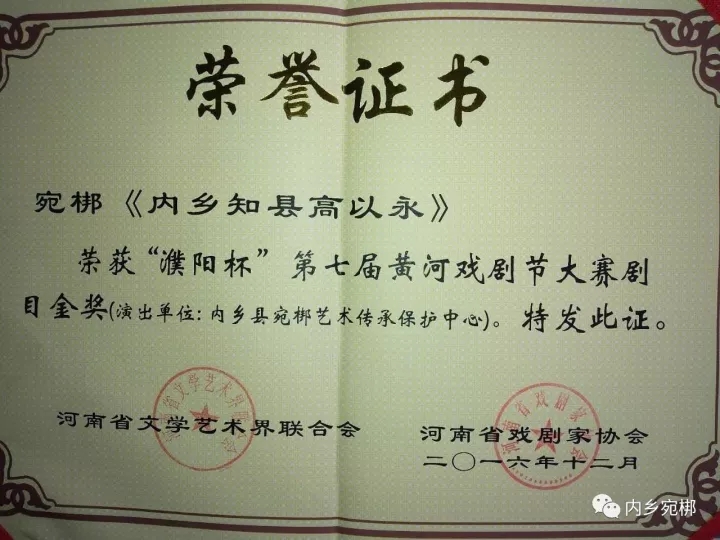 荣誉证书
宛梆《内乡知县高以永》
荣获“濮阳杯”第七届黄河戏剧节大赛剧
目金奖(演出单位：内乡县宛梆艺术传承保护中心)。特发此证。
河南省文学艺术界联合会
河南省文学艺术界联合会
河南省戏剧家协会
河南省戏剧家协会
二〇一六年十二月
内乡宛梆